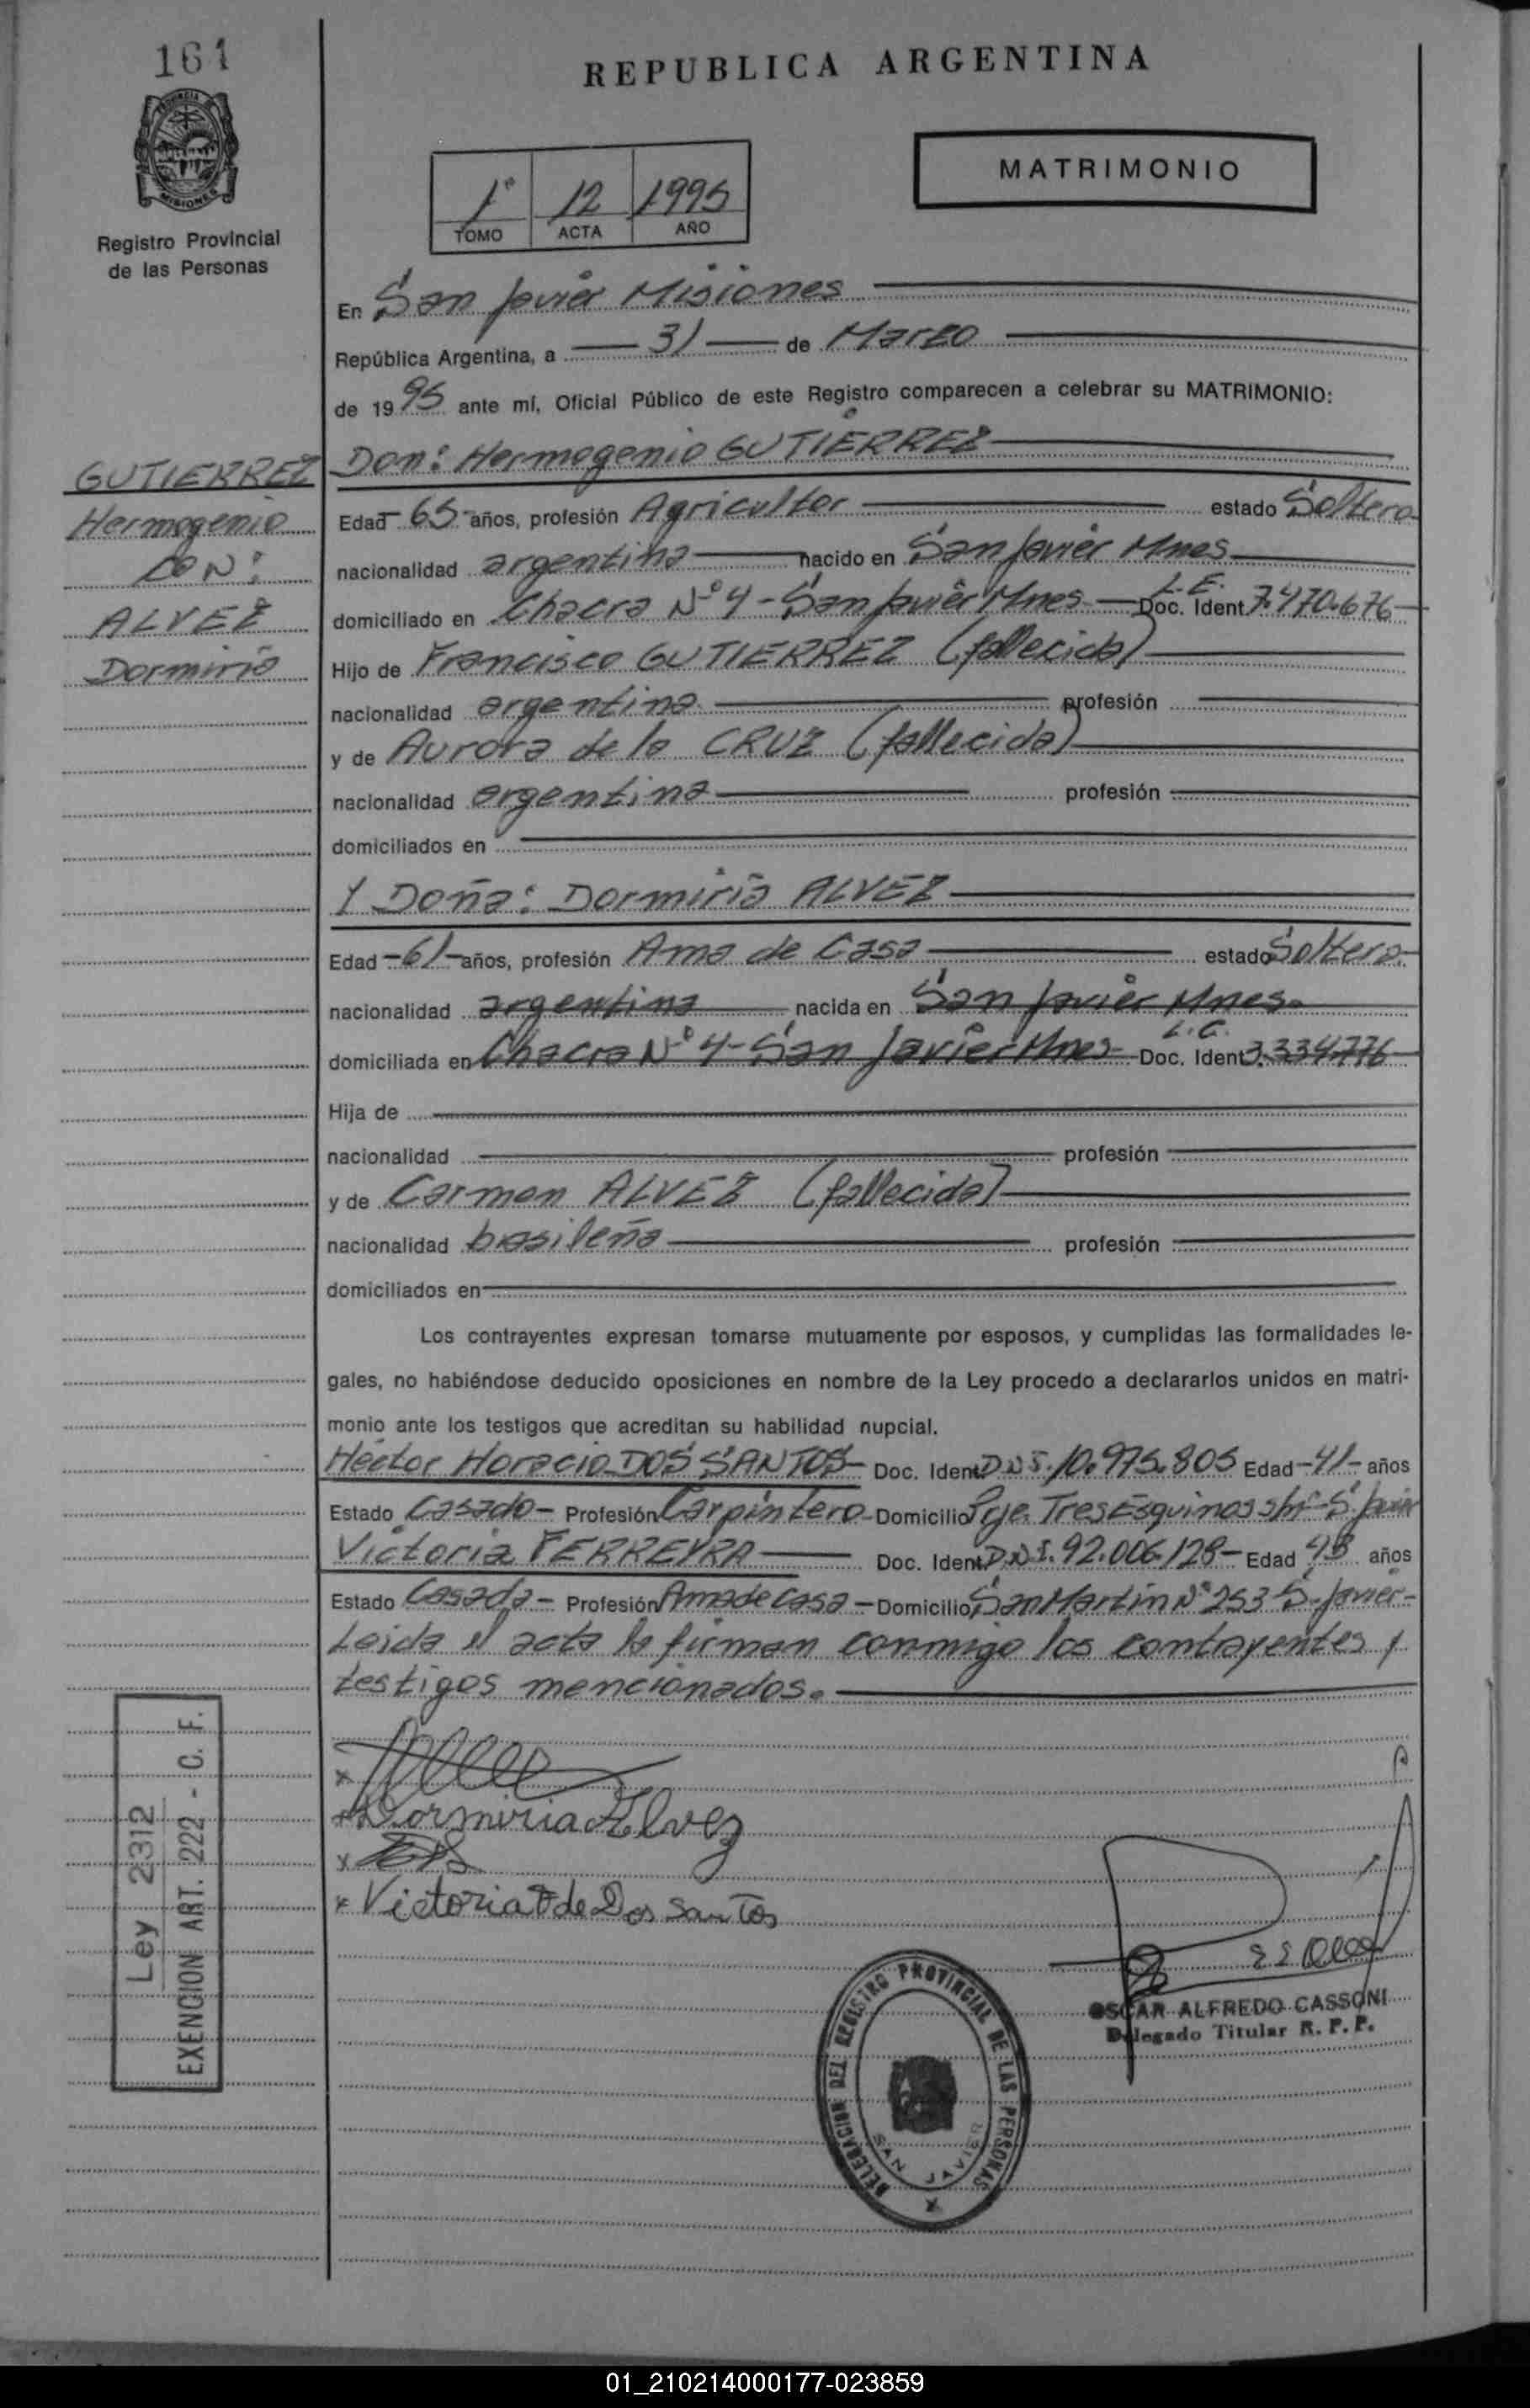 161
REPUBLICA ARGENTINA
PROVINCIA DE
MISIONES
Registro Provincial
de las Personas
1º 12 1995
TOMO ACTA AÑO
MATRIMONIO
En San Javier Misiones
República Argentina, a 31 de Marzo
de 1995 ante mí, Oficial Público de este Registro comparecen a celebrar su MATRIMONIO:
GUTIERREZ
Hermogenio
CON:
ALVEZ
Dormiria
Don: Hermogenio GUTIERREZ
Edad 65 años, profesión Agricultor estado Soltero
nacionalidad argentina nacido en San Javier Mnes
domiciliado en Chacra Nº 4 - San Javier Mnes Doc. Ident. L.E. 7.470.676
Hijo de Francisco GUTIERREZ (fallecido)
nacionalidad argentina profesión
y de Aurora de la CRUZ (fallecida)
nacionalidad argentina profesión
domiciliados en
Y Doña: Dormiria ALVEZ
Edad 61 años, profesión Ama de Casa estado Soltera
nacionalidad argentina nacida en San Javier Mnes.
domiciliada en Chacra Nº 4 - San Javier Mnes Doc. Ident. L.C. 3.334.776
Hija de
nacionalidad profesión
y de Carmen ALVEZ (fallecida)
nacionalidad brasileña profesión
domiciliados en
Los contrayentes expresan tomarse mutuamente por esposos, y cumplidas las formalidades le-
gales, no habiéndose deducido oposiciones en nombre de la Ley procedo a declararlos unidos en matri-
monio ante los testigos que acreditan su habilidad nupcial.
Héctor Horacio DOS SANTOS Doc. Ident. DNI. 10.975.805 Edad 41 años
Estado Casado Profesión Carpintero Domicilio Pje. Tres Esquinas s/nº S. Javier
Victoria FERREYRA Doc. Ident. DNI. 92.006.128 Edad 43 años
Estado Casada Profesión Ama de casa Domicilio San Martín Nº 253 S. Javier
Leida el acta la firman conmigo los contrayentes y
testigos mencionados.
x
x Dormiria Alvez
x
x Victoria F de Dos Santos
Ley 2312
EXENCION ART. 222 - C. F.
OSCAR ALFREDO CASSONI
Delegado Titular R. P. P.
DELEGACION DEL REGISTRO PROVINCIAL DE LAS PERSONAS
SAN JAVIER
01_210214000177-023859